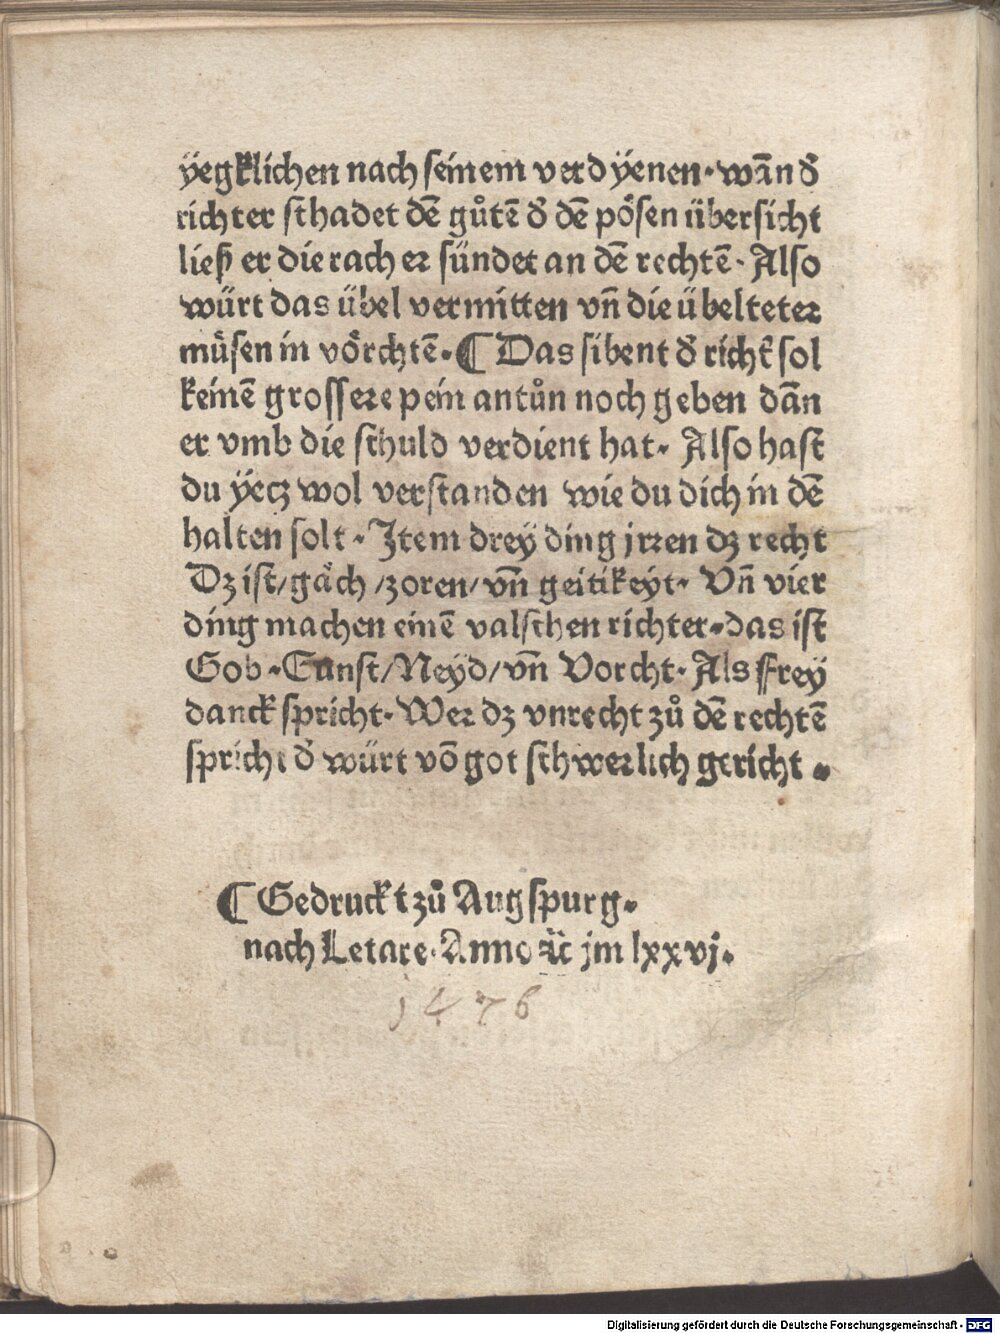 ÿegklichen nach seinem verdÿenen· wañ d̕
richter schadet dē gůtē d̕ dē pösen übersicht
ließ er die rach er sündet an dē rechtē· Also
würt das übel vermitten vñ die übelteter
müsen in vörchtē· ¶ Das sibent d̕ richt̕ sol
keinē grossere pein antůn noch geben dañ
er vmb die schuld verdient hat· Also hast
du ÿecz wol verstanden wie du dich in dē
halten solt· Item dreÿ ding jrren dz recht
Dz ist/gäch/zoren/vñ geitikeyt· Vñ vier
ding machen einē valschen richter· das ist
Gob· Gunst/Neÿd/vñ Vorcht· Als Frey
danck spricht· Wer dz vnrecht zů dē rechtē
spricht d̕ würt vō got schwerlich gericht·
¶ Gedruckt zů Augspurg·
nach Letare· Anno ⁊c̄ jm lxxvj·
1476
Digitalisierung gefördert durch die Deutsche Forschungsgemeinschaft - DFG